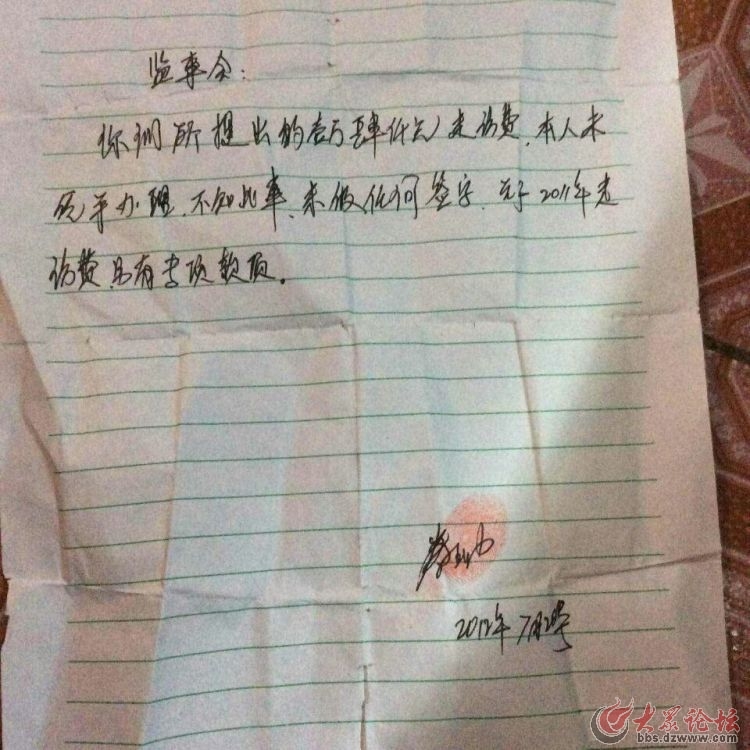 监事会：
你们所提出的壹万肆仟元走访费，本人未
见未办理，不知此事，未做任何签字，关于2011年走
访费另有专项款项。
2012年7月2号
大众论坛
bbs.dzwww.com